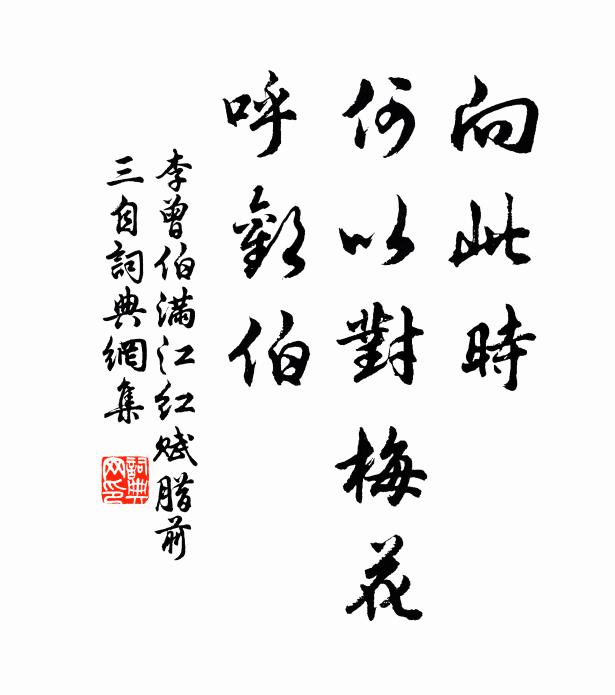 向此時
何以對梅花
呼歡伯
李曾伯滿江红赋腊前
三自詞典網集
詞典
网印